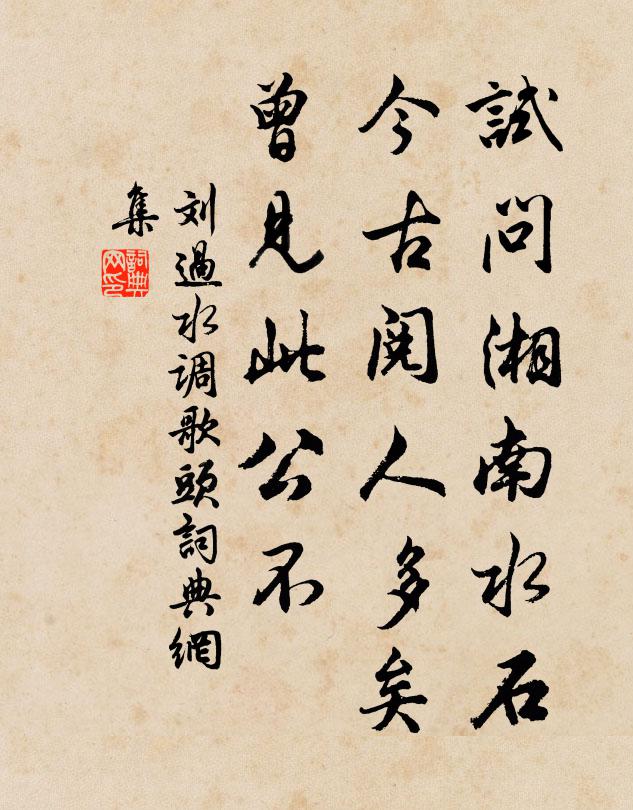 試問湘南水石
今古閱人多矣
曾見此公不
刘過水调歌頭詞典網
集
詞典
网印